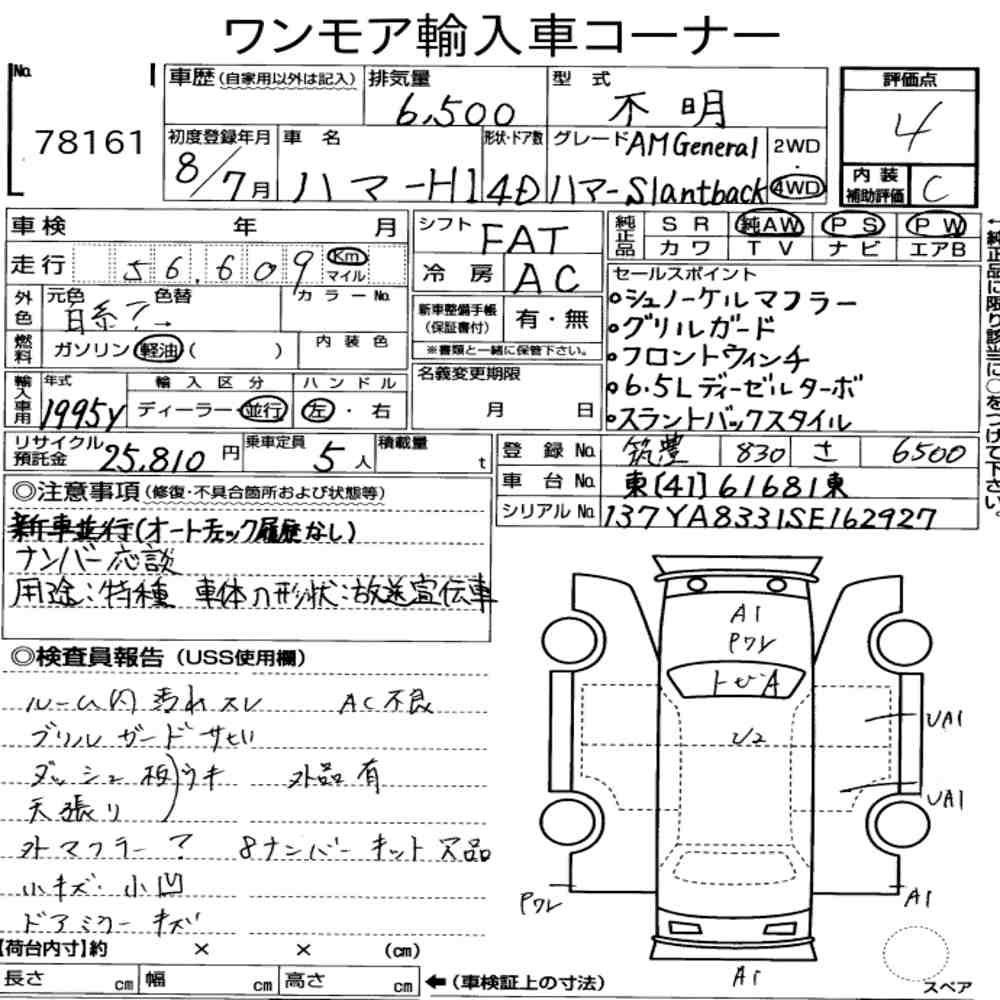 ワンモア輸入車コーナー
No. 78161
車歴(自家用以外は記入) 排気量 6,500 型式 不明
評価点 4
初度登録年月 8/7月 車名 ハマーH1 形状・ドア数 4D グレード AM General ハマー Slantback 2WD・4WD
内装補助評価 C
車検 年 月
走行 56,609 Km マイル
外色 元色 色替 カラーNo.
白系?→
燃料 ガソリン 軽油 ( ) 内装色
輸入車用 年式 1995y 輸入区分 ディーラー・並行 ハンドル 左・右
シフト FAT
冷房 AC
新車整備手帳(保証書付) 有・無
※書類と一緒に保管下さい。
名義変更期限
月 日
純正品 SR 純AW PS PW
カワ TV ナビ エアB
←純正品に限り該当に○をつけて下さい。
セールスポイント
○シュノーケルマフラー
○グリルガード
○フロントウィンチ
○6.5Lディーゼルターボ
○スラントバックスタイル
リサイクル預託金 25,810円 乗車定員 5人 積載量 t
登録No. 筑豊 830 さ 6500
車台No. 東[41]61681東
シリアルNo. 137YA8331SE162927
◎注意事項(修復・不具合箇所および状態等)
新車並行(オートチェック履歴なし)
ナンバー応談
用途:特種 車体の形状:放送宣伝車
◎検査員報告(USS使用欄)
ルーム内 汚れ スレ AC不良
グリルガード サビ
ダッシュ板)ウキ 外品有
天張り
外マフラー? 8ナンバーキット欠品
小キズ・小凹
ドアミラー キズ
【荷台内寸】約 × × (cm)
長さ cm 幅 cm 高さ cm
←(車検証上の寸法)
A1
Pワレ
トビA
UA1
UA1
Pワレ
A1
A1
スペア